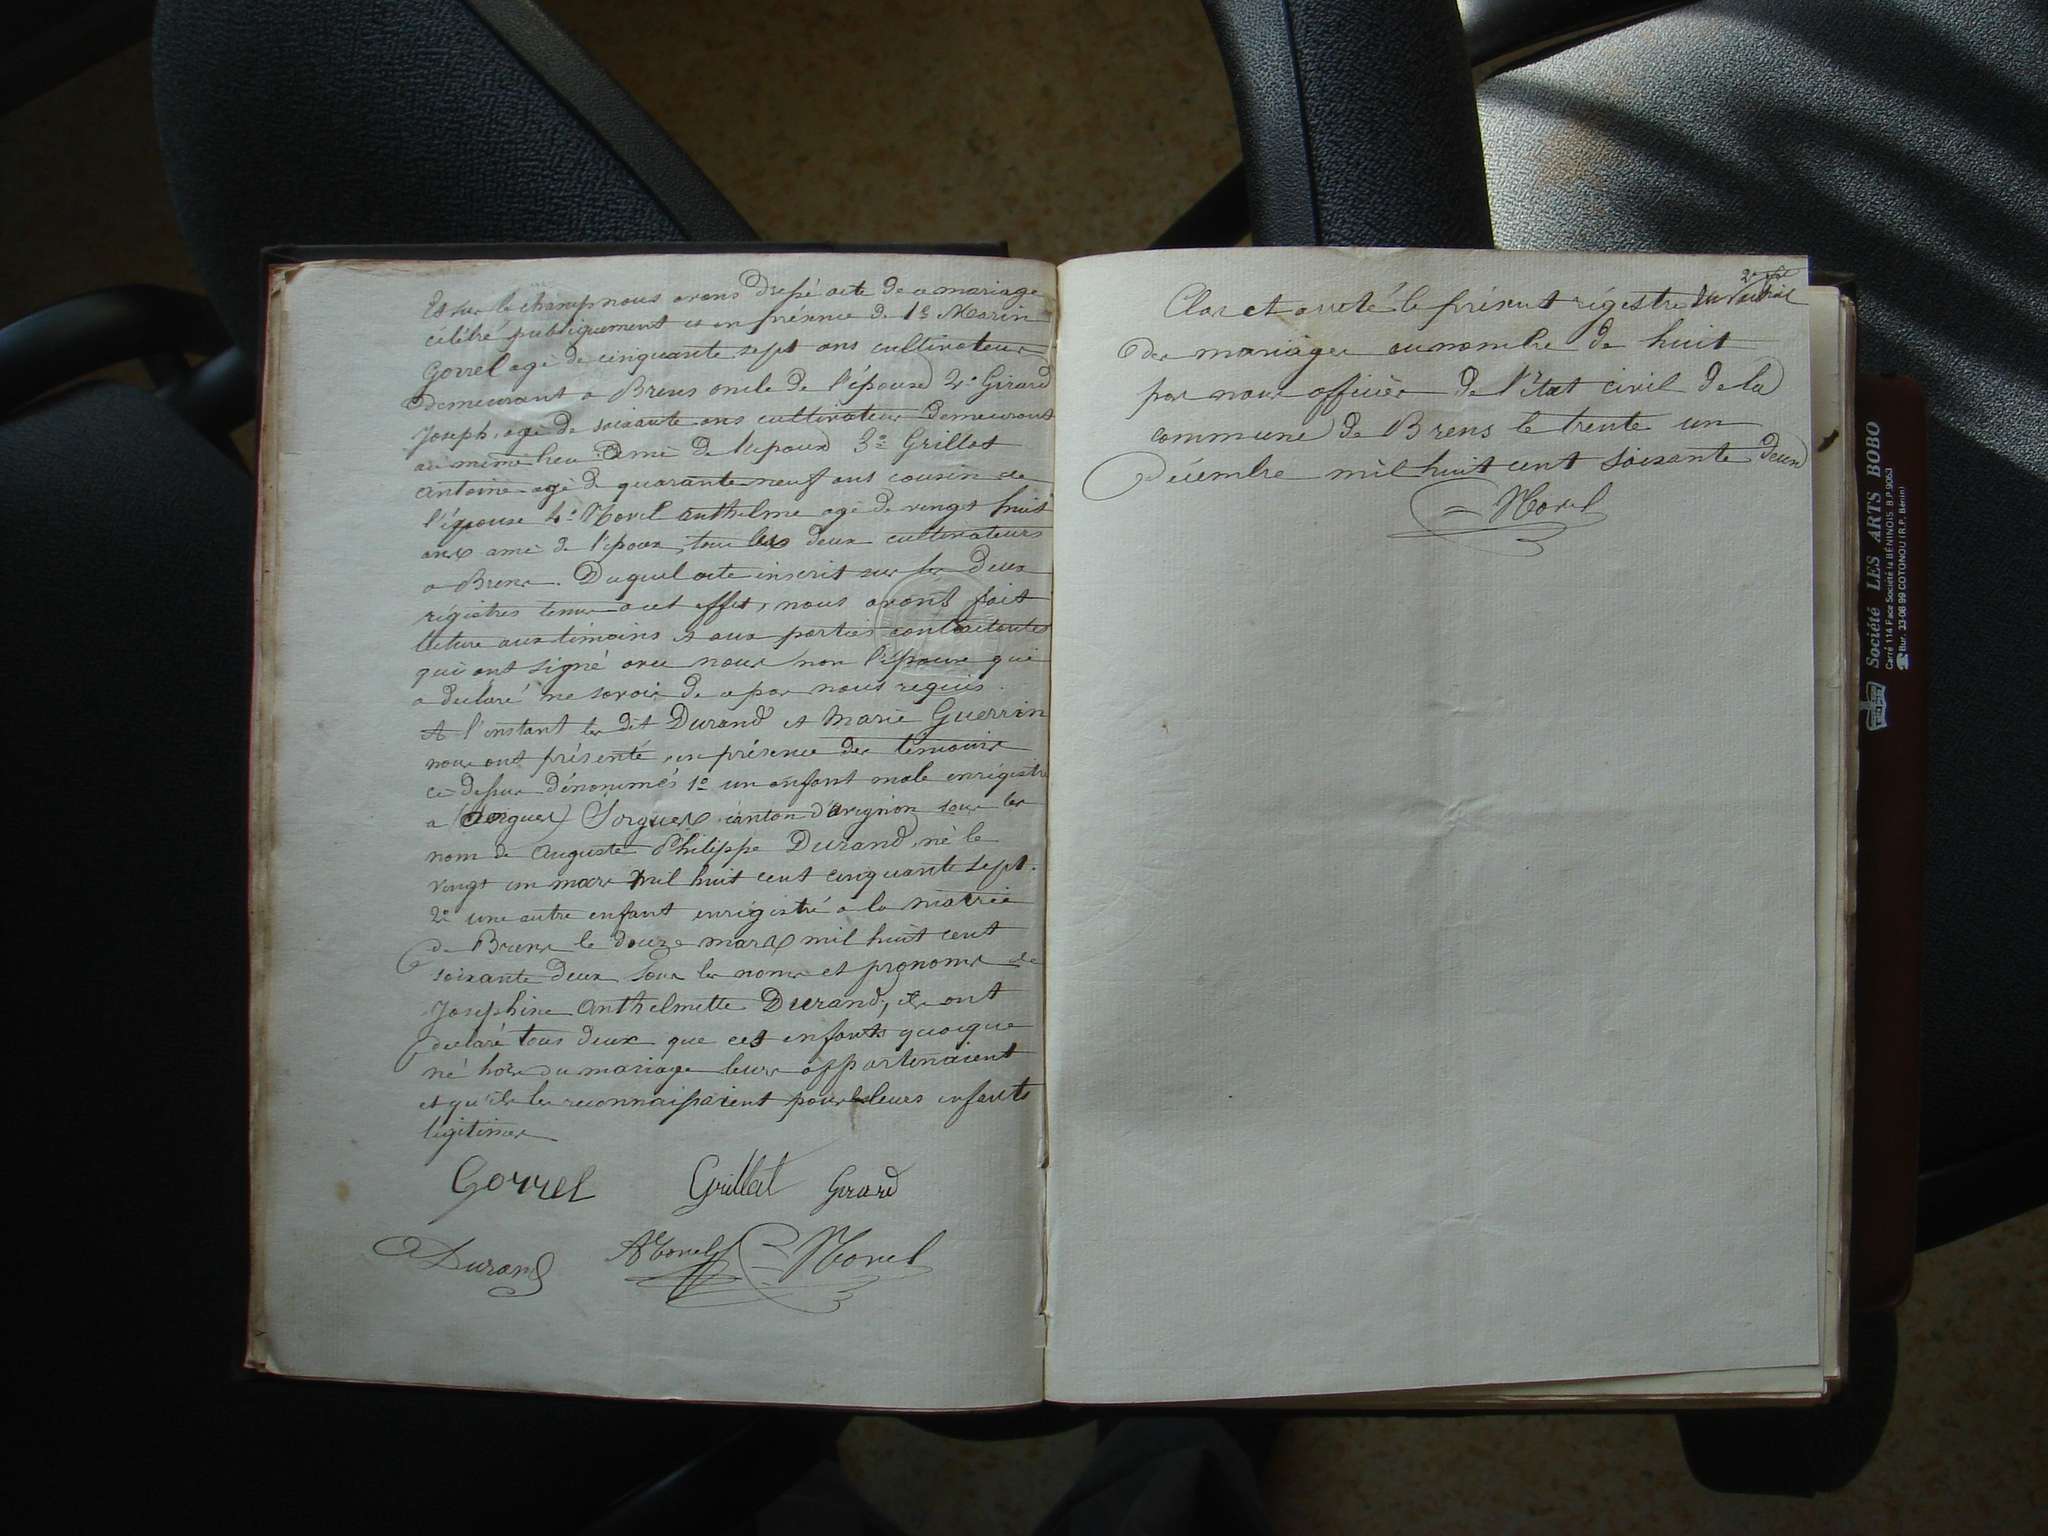 Et sur le champ nous avons dressé acte de ce mariage
célébré publiquement et en présence de 1º Marin
Gorrel agé de cinquante sept ans cultivateur
demeurant a Brens oncle de l'épouse 2º Girard
Joseph, agé de soixante ans cultivateur demeurant
au même lieu ami de l'epoux 3º Grillat
antoine agé de quarante neuf ans cousin de
l'épouse 4º Morel anthelme agé de vingt huit
ans ami de l'epoux, tous les deux cultivateurs
a Brens. Duquel acte inscrit sur les deux
régistres tenus a cet effet, nous avons fait
lecture aux témoins et aux parties contractantes
qui ont signé avec nous non l'épouse qui
a déclaré ne savoir de ce par nous requis.
A l'instant les dit Durand et Marie Guerrin
nous ont présenté en présence des temoins
ci dessus dénommés 1º un enfant male enrégistré
a Sorgues canton d'avignon sous les
nom de auguste Philippe Durand, né le
vingt un mars mil huit cent cinquante sept.
2º une autre enfant enrégistré a la mairie
de Brens le douze mars mil huit cent
soixante deux sous les noms et prenoms de
Josephine anthelmette Durand; ils ont
déclaré tous deux que ces enfants quoique
né hors du mariage leurs appartenaient
et qu'ils les reconnaissaient pour leurs enfants
légitimes
Gorrel Grillat Girard
Durand AMorel Morel
Clos et arreté le présent régistre
des mariages au nombre de huit
par nous officier de l'état civil de la
commune de Brens le trente un
décembre mil huit cent soixante deux
Morel
Société LES ARTS BOBO
Carré 114 Face Société la BÉNINOIS B.P.9063
☎ Bur. 33-06 99 COTONOU (R.P. Bénin)